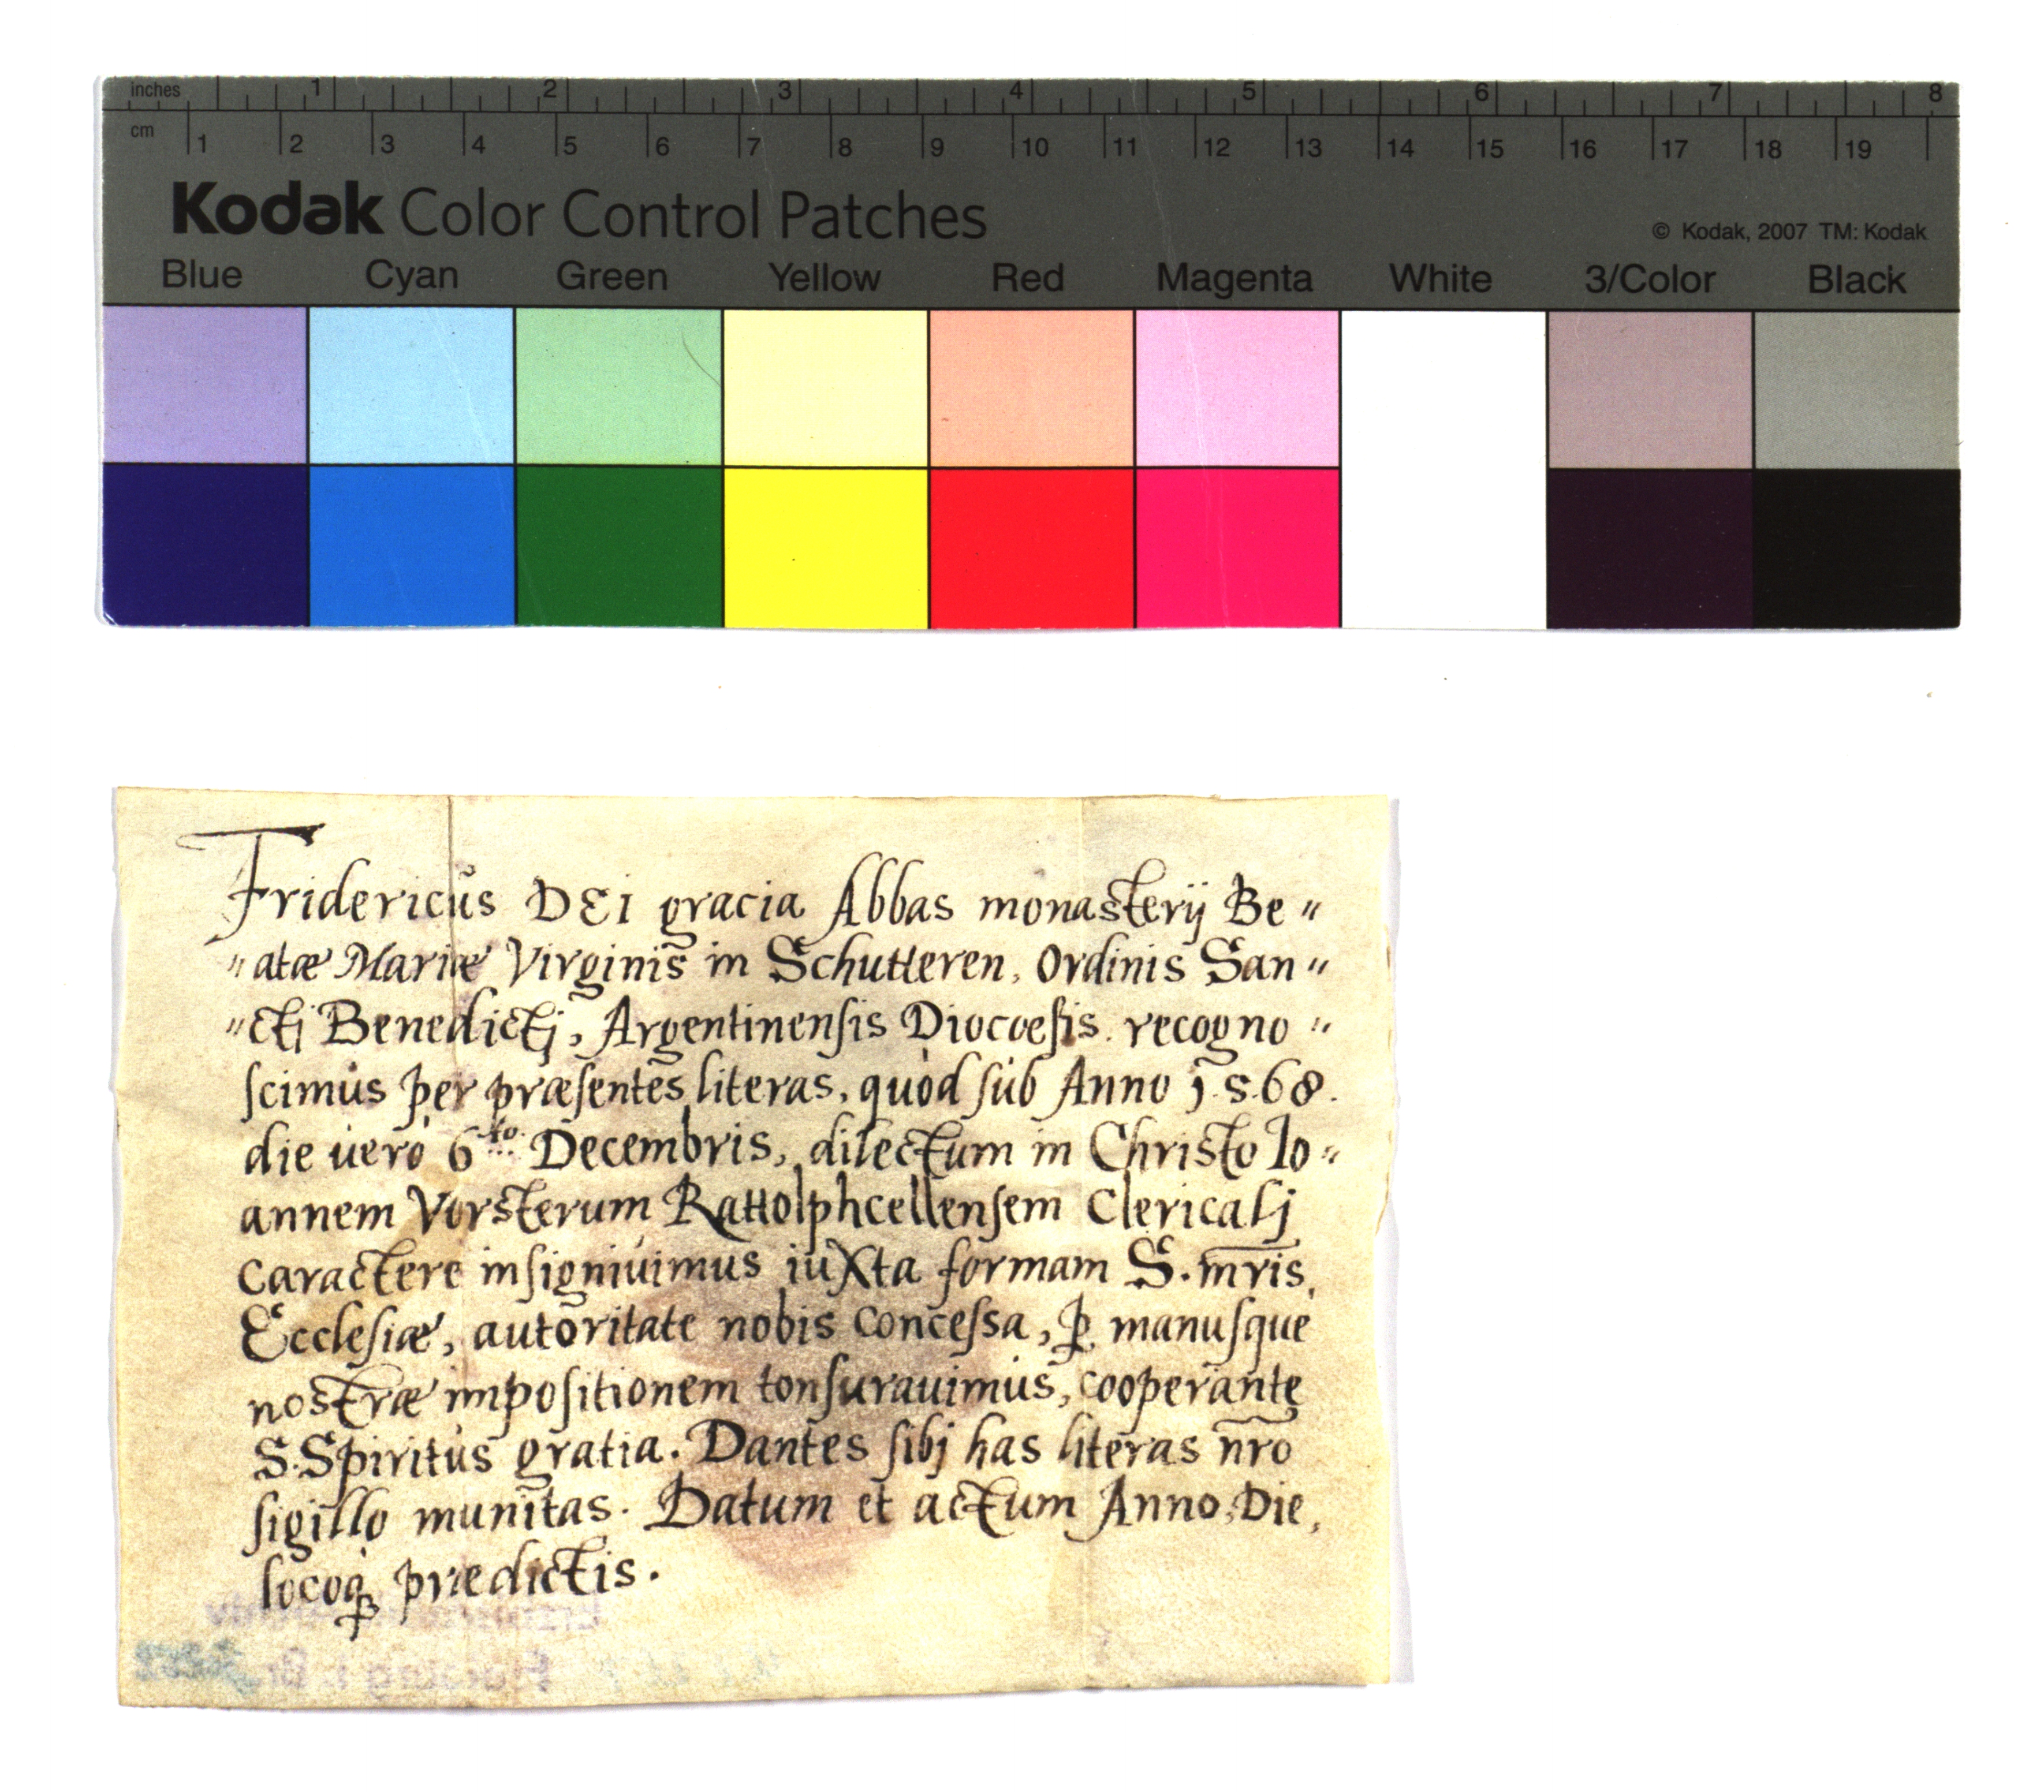 inches 1 2 3 4 5 6 7 8
cm 1 2 3 4 5 6 7 8 9 10 11 12 13 14 15 16 17 18 19
Kodak Color Control Patches
© Kodak, 2007 TM: Kodak
Blue Cyan Green Yellow Red Magenta White 3/Color Black
Fridericus DEI gracia Abbas monasterij Be〃
〃atæ Mariæ Virginis in Schutteren, Ordinis San〃
〃ctj Benedictj, Argentinensis Diocoesis. recogno〃
scimus per præsentes literas, quòd sub Anno 1.5.68.
die uerò 6to. Decembris, dilectum in Christo Io〃
annem Vorsterum Rattolphcellensem Clericalj
Caractere insigniuimus iuxta formam S. mris,
Ecclesiæ, autoritate nobis concessa, ꝑ manusque
nostræ impositionem tonsurauimus, cooperante
S. Spiritus gratia. Dantes sibj has literas nr̃o
sigillo munitas. Datum et actum Anno, Die,
locoqꝫ prædictis.